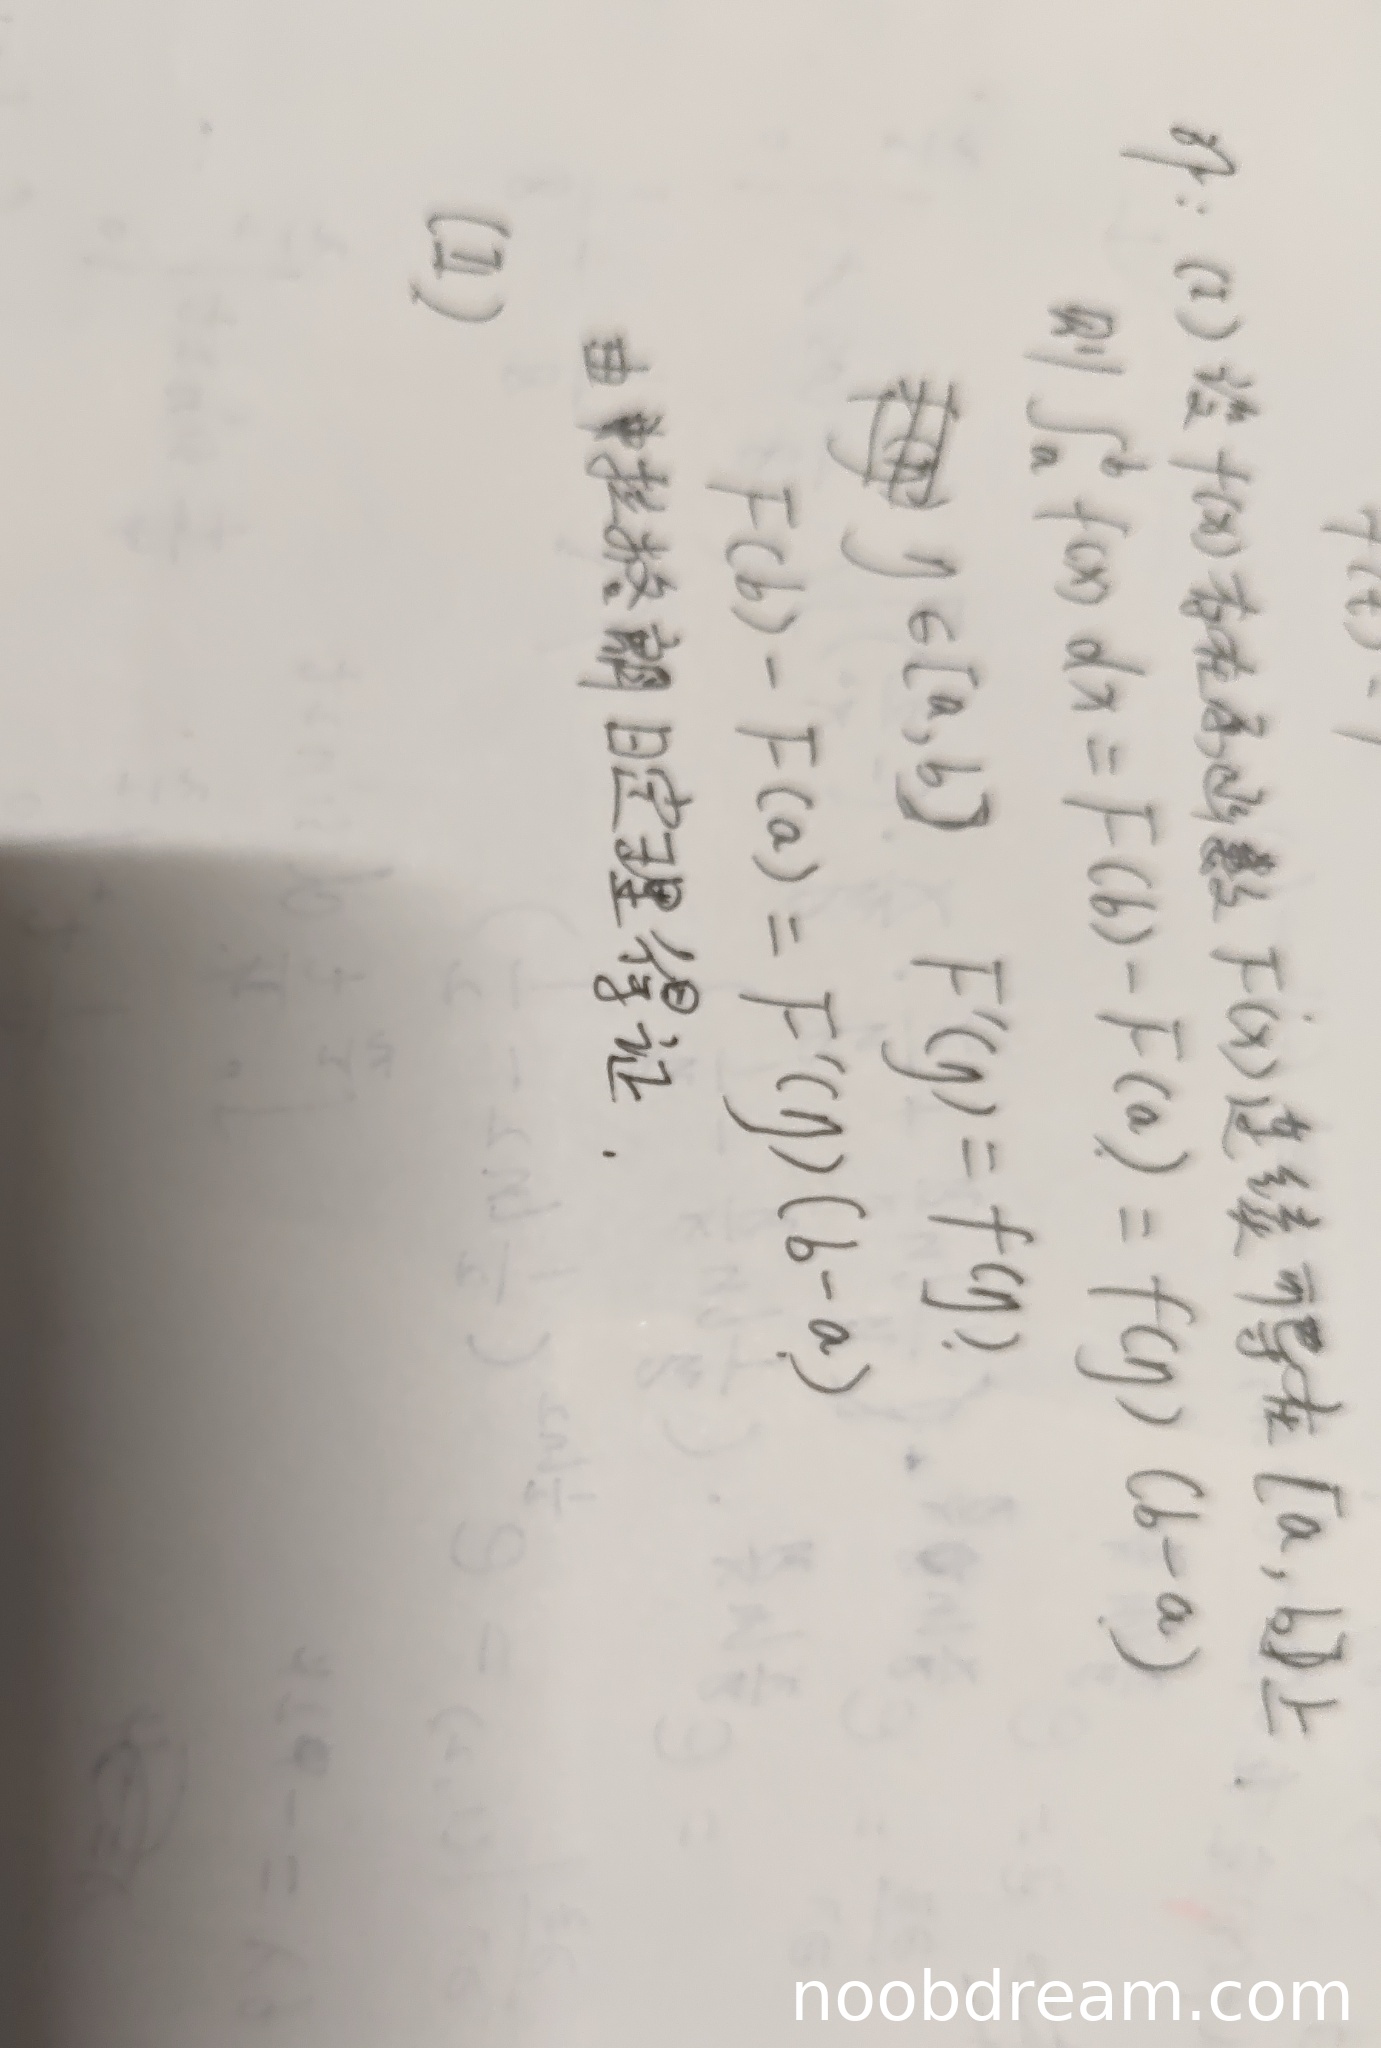 f(t) = 1
外: (1) 设 f(x) 存在原函数 F(x) 连续可导在 [a, b] 上
则 ∫_a^b f(x) dx = F(b) - F(a) = f(η) (b-a)
η ∈ [a, b] F'(η) = f(η)
F(b) - F(a) = F'(η) (b-a)
由拉格朗日定理得证.
(II)
noobdream.com